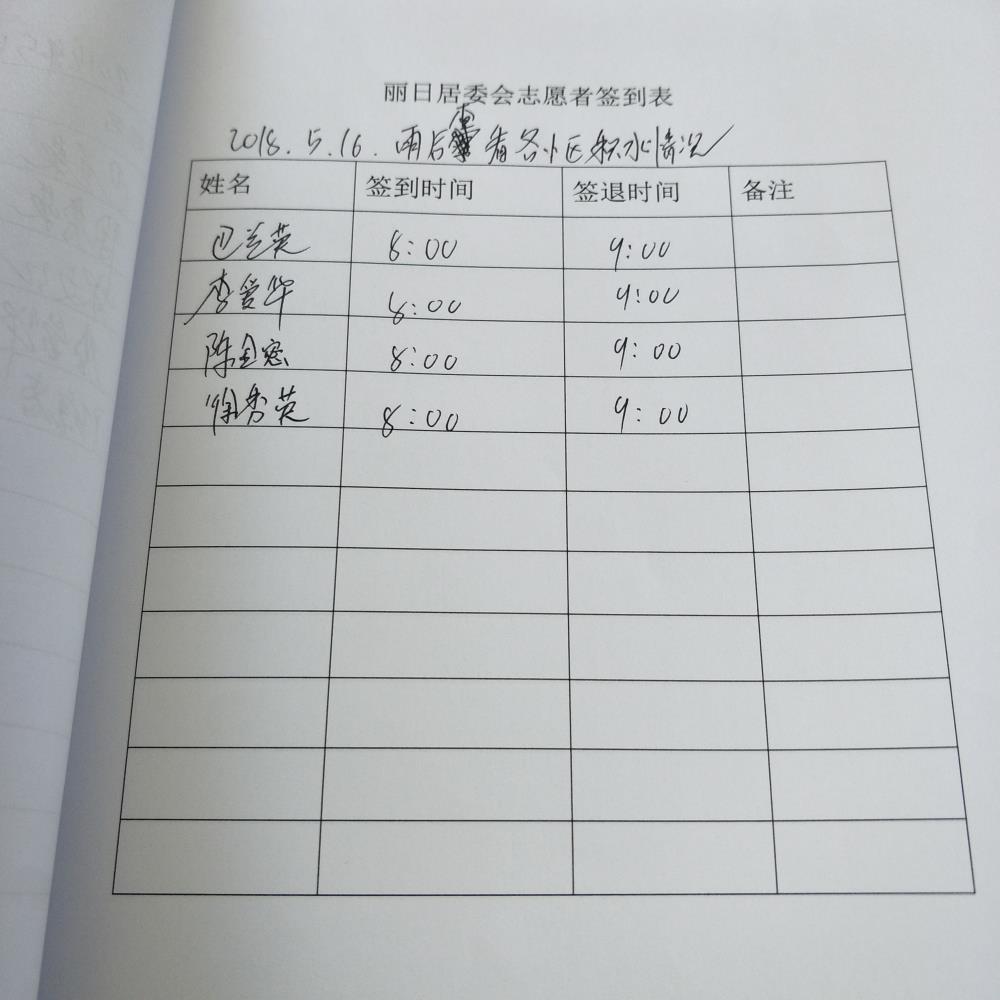 丽日居委会志愿者签到表
2018.5.16.雨后查看各小区积水情况
姓名 签到时间 签退时间 备注
兰英 8:00 9:00
李爱华 8:00 9:00
陈金 8:00 9:00
徐秀英 8:00 9:00